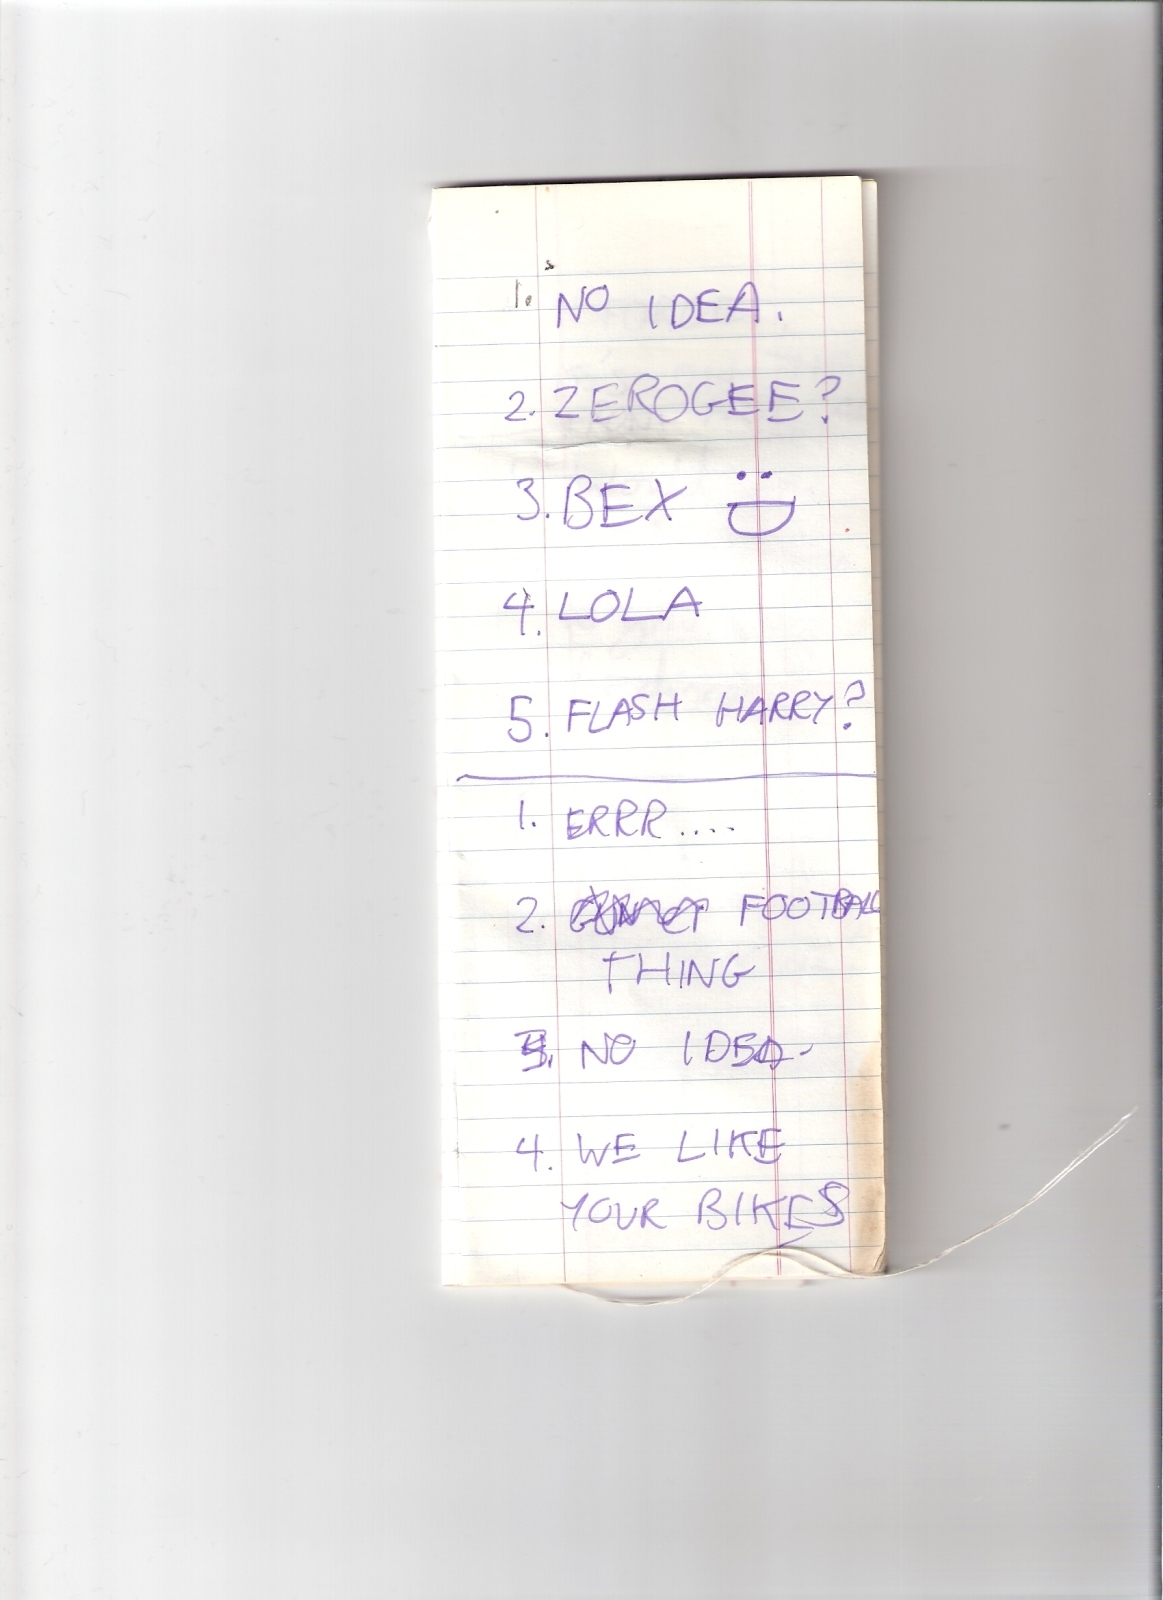 1. NO IDEA.
2. ZEROGEE?
3. BEX
4. LOLA
5. FLASH HARRY?
1. ERRR....
2. FOOTBALL
THING
3. NO IDEA.
4. WE LIKE
YOUR BIKES